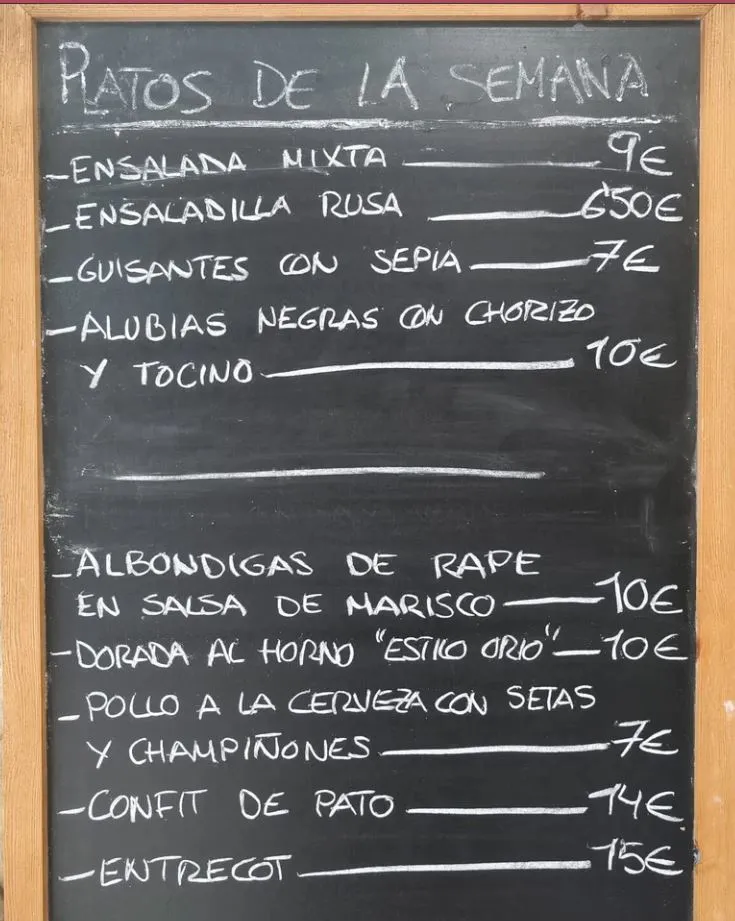 PLATOS DE LA SEMANA
- ENSALADA MIXTA 9€
- ENSALADILLA RUSA 6'50€
- GUISANTES CON SEPIA 7€
- ALUBIAS NEGRAS CON CHORIZO
Y TOCINO 10€
- ALBONDIGAS DE RAPE
EN SALSA DE MARISCO 10€
- DORADA AL HORNO "ESTILO ORIO" 10€
- POLLO A LA CERVEZA CON SETAS
Y CHAMPIÑONES 7€
- CONFIT DE PATO 14€
- ENTRECOT 15€